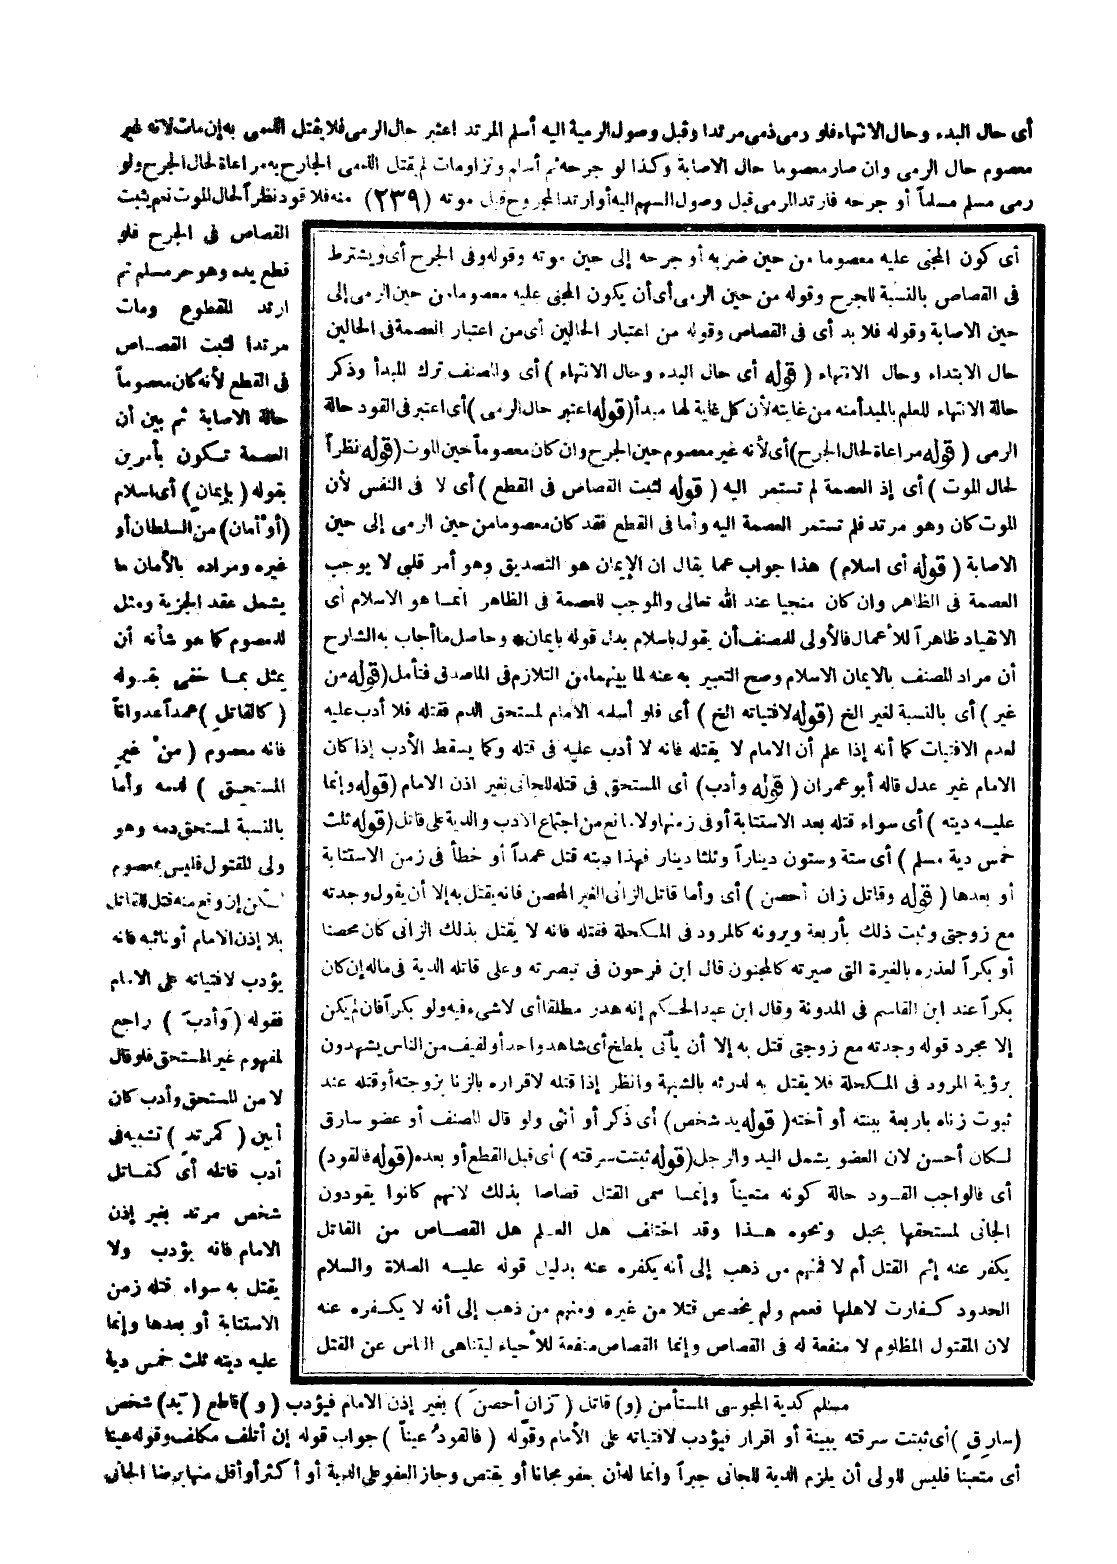 أى حال البدء وحال الانتهاء فلو رمى ذمى مرتدا وقبل وصول الرمية اليه أسلم المرتد اعتبر حال الرمى فلا يقتل الذمى به إن مات لانه غير
معصوم حال الرمى وان صار معصوما حال الاصابة وكذا لو جرحه ثم أسلم ونزا ومات لم يقتل الذمى الجارح به مراعاة لحال الجرح ولو
رمى مسلم مسلماً أو جرحه فارتد المرمى قبل وصول السهم اليه أو ارتد المجروح قبل موته (٢٣٩) منه فلا قود نظراً لحال الموت نعم يثبت
القصاص فى الجرح فلو
قطع يده وهو حر مسلم ثم
ارتد المقطوع ومات
مرتدا لثبت القصاص
فى القطع لأنه كان معصوماً
حالة الاصابة ثم بين أن
العصمة تكون بأمرين
بقوله (بإيمان) أى اسلام
(أو أمان) من السلطان أو
غيره ومراده بالأمان ما
يشمل عقد الجزية ومثل
للمعصوم كما هو شأنه أن
يمثل بما خفى بقوله
(كالقاتل) عمداً عدواناً
فانه معصوم (من غير
المستحق) لدمه وأما
بالنسبة لمستحق دمه وهو
ولى المقتول فليس بمعصوم
لكن إن وقع منه قتل للقاتل
بلا إذن الامام أو نائبه فانه
يؤدب لافتياته على الامام
فقوله (وأدب) راجع
لمفهوم غير المستحق فلو قال
لا من المستحق وأدب كان
أبين (كمرتد) تشبيه فى
أدب قاتله أى كقاتل
شخص مرتد بغير إذن
الامام فانه يؤدب ولا
يقتل به سواء قتله زمن
الاستتابة أو بعدها وإنما
عليه ديته ثلث خمس دية
مسلم كدية المجوسى المستأمن (و) قاتل (زان أحصن) بغير إذن الامام فيؤدب (و) قاطع (يد) شخص
(سارق) أى ثبتت سرقته ببينة أو اقرار فيؤدب لافتياته على الأمام وقوله (فالقود عيناً) جواب قوله إن أتلف مكلف وقوله عينا
أى متعينا فليس للولى أن يلزم الدية للجانى جبراً وانما له أن يعفو مجانا أو يقتص وجاز العفو على الدية أو أكثر أو أقل منها برضا الجانى
أى كون المجنى عليه معصوما من حين ضربه أو جرحه إلى حين موته وقوله وفى الجرح أى ويشترط
فى القصاص بالنسبة للجرح وقوله من حين الرمى أى أن يكون المجنى عليه معصوما من حين الرمى إلى
حين الاصابة وقوله فلا بد أى فى القصاص وقوله من اعتبار الحالين أى من اعتبار العصمة فى الحالين
حال الابتداء وحال الانتهاء (قوله أى حال البدء وحال الانتهاء) أى والمصنف ترك المبدأ وذكر
حالة الانتهاء للعلم بالمبدأ منه من غايته لأن كل غاية لها مبدأ (قوله اعتبر حال الرمى) أى اعتبر فى القود حالة
الرمى (قوله مراعاة لحال الجرح) أى لأنه غير معصوم حين الجرح وان كان معصوماً حين الموت (قوله نظراً
لحال الموت) أى إذ العصمة لم تستمر اليه (قوله لثبت القصاص فى القطع) أى لا فى النفس لأن
الموت كان وهو مرتد فلم تستمر العصمة اليه وأما فى القطع فقد كان معصوما من حين الرمى إلى حين
الاصابة (قوله أى اسلام) هذا جواب عما يقال ان الإيمان هو التصديق وهو أمر قلبى لا يوجب
العصمة فى الظاهر وان كان منجيا عند الله تعالى والموجب للعصمة فى الظاهر انما هو الاسلام أى
الانقياد ظاهراً للأعمال فالأولى للمصنف أن يقول باسلام بدل قوله بايمان * وحاصل ما أجاب به الشارح
أن مراد المصنف بالايمان الاسلام وصح التعبير به عنه لما بينهما من التلازم فى الماصدق فتأمل (قوله من
غير) أى بالنسبة لغير الخ (قوله لافتياته الخ) أى فلو أسلمه الامام لمستحق الدم فقتله فلا أدب عليه
لعدم الافتيات كما أنه إذا علم أن الامام لا يقتله فانه لا أدب عليه فى قتله وكما يسقط الأدب إذا كان
الامام غير عدل قاله أبو عمران (قوله وأدب) أى المستحق فى قتله للجانى بغير اذن الامام (قوله وإنما
عليه ديته) أى سواء قتله بعد الاستتابة أو فى زمنها ولا مانع من اجتماع الأدب والدية على قاتل (قوله ثلث
خمس دية مسلم) أى ستة وستون ديناراً وثلثا دينار فهذا ديته قتل عمداً أو خطأ فى زمن الاستتابة
أو بعدها (قوله وقاتل زان أحصن) أى وأما قاتل الزانى الغير المحصن فانه يقتل به إلا أن يقول وجدته
مع زوجتى وثبت ذلك بأربعة ويرونه كالمرود فى المكحلة فقتله فانه لا يقتل بذلك الزانى كان محصنا
أو بكراً لعذره بالغيرة التى صيرته كالمجنون قال ابن فرحون فى تبصرته وعلى قاتله الدية فى ماله إن كان
بكراً عند ابن القاسم فى المدونة وقال ابن عبد الحكم إنه هدر مطلقا أى لا شىء فيه ولو بكراً فان لم يكن
إلا مجرد قوله وجدته مع زوجتى قتل به إلا أن يأتى بلطخ أى شاهد واحد أو لفيف من الناس يشهدون
برؤية المرود فى المكحلة فلا يقتل به لدرئه بالشبهة وانظر إذا قتله لاقراره بالزنا بزوجته أو قتله عند
ثبوت زناه باربعة ببنته أو أخته (قوله يد شخص) أى ذكر أو أنثى ولو قال المصنف أو عضو سارق
لكان أحسن لان العضو يشمل اليد والرجل (قوله ثبتت سرقته) أى قبل القطع أو بعده (قوله فالقود)
أى فالواجب القود حالة كونه متعيناً وإنما سمى القتل قصاصا بذلك لانهم كانوا يقودون
الجانى لمستحقها بحبل ونحوه هذا وقد اختلف هل العلم هل القصاص من القاتل
يكفر عنه إثم القتل أم لا فمنهم من ذهب إلى أنه يكفره عنه بدليل قوله عليه الصلاة والسلام
الحدود كفارت لاهلها فعمم ولم يخصص قتلا من غيره ومنهم من ذهب إلى أنه لا يكفره عنه
لان المقتول المظلوم لا منفعة له فى القصاص وإنما القصاص منفعة للأحياء ليتناهى الناس عن القتل